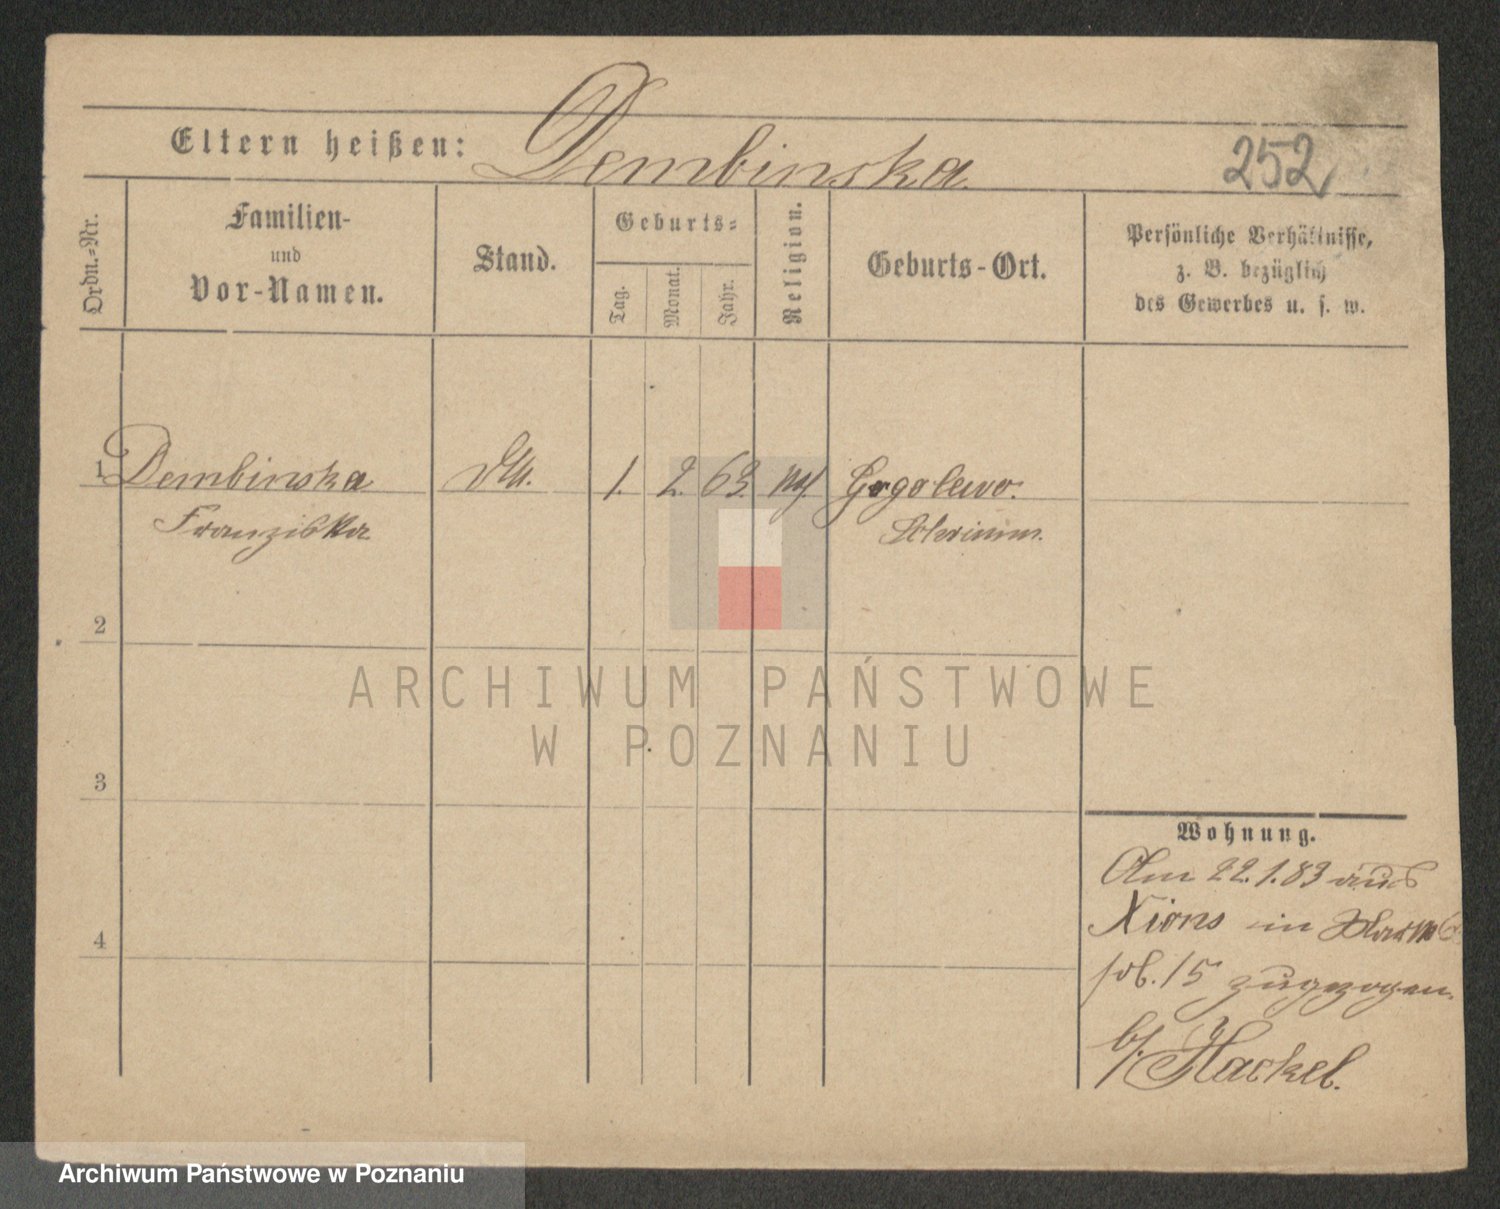 Eltern heißen: Dembinska
252
Ordn.-Nr.
Familien-
und
Vor-Namen.
Stand.
Geburts-
Tag.
Monat.
Jahr.
Religion.
Geburts-Ort.
Persönliche Verhältnisse,
z. B. bezüglich
des Gewerbes u. s. w.
1 Dembinska 1. 2. 63. Gogolewo.
Franziska Schrimm.
2
ARCHIWUM PAŃSTWOWE
W POZNANIU
3
Wohnung.
Am 22.1.83 aus
Xions in
15 zugezogen.
b/. Hackel.
4
Archiwum Państwowe w Poznaniu